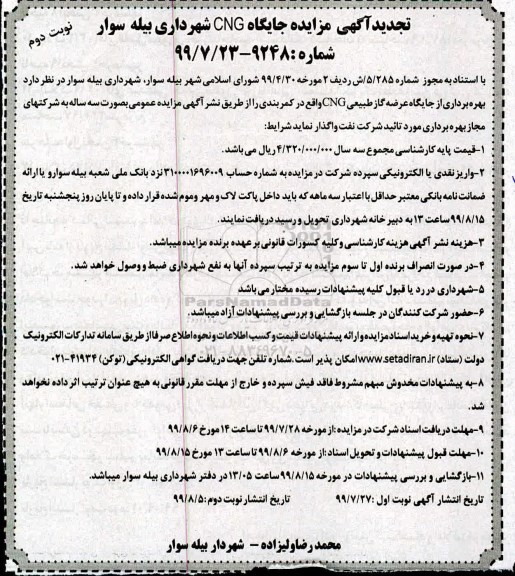 تجدید آگهی مزایده جایگاه CNG شهرداری بیله سوار
نوبت دوم
شماره: ۹۲۴۸-۹۹/۷/۲۳
با استناد به مجوز شماره ۵/۲۸۵/ش ردیف ۲ مورخه ۹۹/۴/۳۰ شورای اسلامی شهر بیله سوار، شهرداری بیله سوار در نظر دارد
بهره برداری از جایگاه عرضه گاز طبیعی CNG واقع در کمربندی را از طریق نشر آگهی مزایده عمومی بصورت سه ساله به شرکتهای
مجاز بهره برداری مورد تائید شرکت نفت واگذار نماید شرایط:
۱-قیمت پایه کارشناسی مجموع سه سال ۴/۳۲۰/۰۰۰/۰۰۰ ریال می باشد.
۲-واریز نقدی یا الکترونیکی سپرده شرکت در مزایده به شماره حساب ۳۱۰۰۰۰۱۶۹۶۰۰۹ نزد بانک ملی شعبه بیله سوار و یا ارائه
ضمانت نامه بانکی معتبر حداقل با اعتبار سه ماهه که باید داخل پاکت لاک و مهر و موم شده قرار داده و تا پایان روز پنجشنبه تاریخ
۹۹/۸/۱۵ ساعت ۱۳ به دبیر خانه شهرداری تحویل و رسید دریافت نمایند.
۳-هزینه نشر آگهی هزینه کارشناسی و کلیه کسورات قانونی بر عهده برنده مزایده میباشد.
۴-در صورت انصراف برنده اول تا سوم مزایده به ترتیب سپرده آنها به نفع شهرداری ضبط و وصول خواهد شد.
۵-شهرداری در رد یا قبول کلیه پیشنهادات رسیده مختار می باشد
۶-حضور شرکت کنندگان در جلسه بازگشایی و بررسی پیشنهادات آزاد میباشد.
۷-نحوه تهیه و خرید اسناد مزایده و ارائه پیشنهادات قیمت و کسب اطلاعات و نحوه اطلاع صرفا از طریق سامانه تدارکات الکترونیک
دولت (ستاد) www.setadiran.ir امکان پذیر است. شماره تلفن جهت دریافت گواهی الکترونیکی (توکن) ۴۱۹۳۴-۰۲۱
۸-به پیشنهادات مخدوش مبهم مشروط فاقد فیش سپرده و خارج از مهلت مقرر قانونی به هیچ عنوان ترتیب اثر داده نخواهد
شد.
۹-مهلت دریافت اسناد شرکت در مزایده: از مورخه ۹۹/۷/۲۸ تا ساعت ۱۴ مورخ ۹۹/۸/۶
۱۰-مهلت قبول پیشنهادات و تحویل اسناد: از مورخه ۹۹/۸/۶ تا ساعت ۱۳ مورخ ۹۹/۸/۱۵
۱۱-بازگشایی و بررسی پیشنهادات در مورخه ۹۹/۸/۱۵ ساعت ۱۳/۰۵ در دفتر شهرداری بیله سوار میباشد.
تاریخ انتشار آگهی نوبت اول: ۹۹/۷/۲۷ تاریخ انتشار نوبت دوم: ۹۹/۸/۵
محمدرضا ولیزاده - شهردار بیله سوار
ParsNamadData